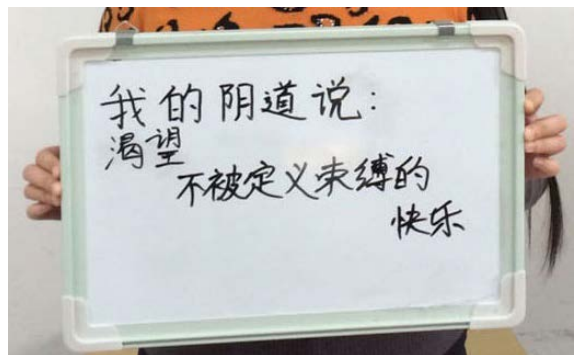 我的阴道说:
渴望
不被定义束缚的
快乐